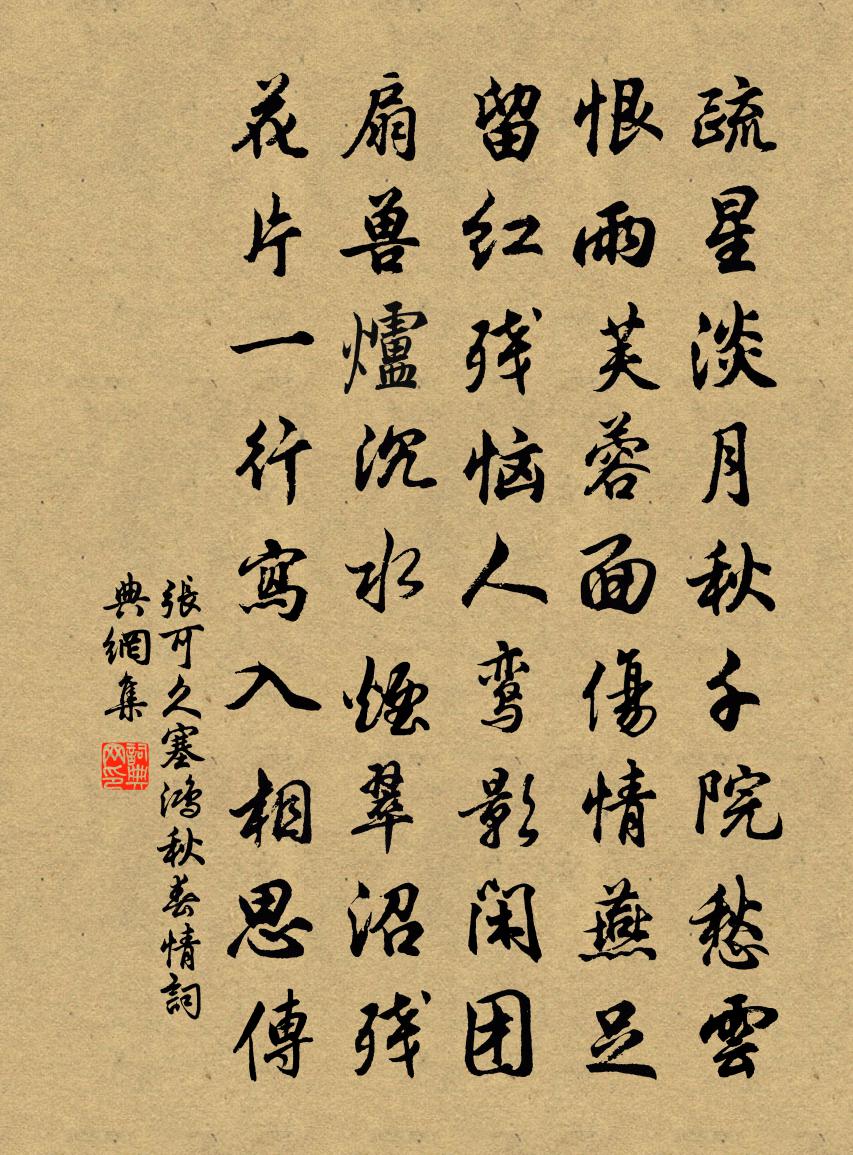 疏星淡月秋千院愁雲
恨雨芙蓉面傷情燕足
留红残恼人鸾影闲团
扇兽爐沉水煙翠沼残
花片一行寫入相思傳
張可久塞鴻秋春情詞
典網集
詞典网印